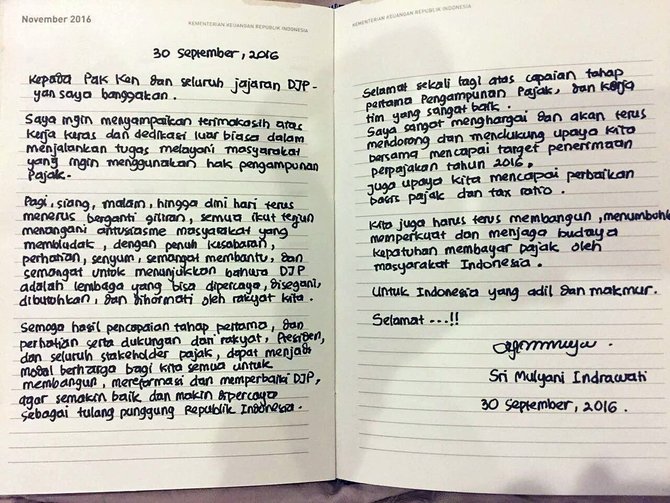 November 2016
KEMENTERIAN KEUANGAN REPUBLIK INDONESIA
30 September, 2016
Kepada Pak Ken dan seluruh jajaran DJP
yan saya banggakan.
Saya ingin menyampaikan terimakasih atas
kerja keras dan dedikasi luar biasa dalam
menjalankan tugas melayani masyarakat
yang ingin menggunakan hak pengampunan
Pajak.
Pagi, siang, malam, hingga dini hari terus
menerus berganti giliran, semua ikut terjun
menangani antusiasme masyarakat yang
membludak, dengan penuh kesabaran,
perhatian, senyum, semangat membantu, dan
semangat untuk menunjukkan bahwa DJP
adalah lembaga yang bisa dipercaya, disegani,
dibutuhkan, dan dihormati oleh rakyat kita.
Semoga hasil pencapaian tahap pertama, dan
perhatian serta dukungan dari rakyat, Presiden,
dan seluruh stakeholder pajak, dapat menjadi
modal berharga bagi kita semua untuk
membangun, mereformasi dan memperbaiki DJP,
agar semakin baik dan makin dipercaya
sebagai tulang punggung Republik Indonesia.
KEMENTERIAN KEUANGAN REPUBLIK INDONESIA
Selamat sekali lagi atas capaian tahap
pertama Pengampunan Pajak, dan kerja
tim yang sangat baik.
Saya sangat menghargai dan akan terus
mendorong dan mendukung upaya kita
bersama mencapai target penerimaan
perpajakan tahun 2016.
juga upaya kita mencapai perbaikan
basis pajak dan tax ratio.
Kita juga harus terus membangun, menumbuhk
memperkuat dan menjaga budaya
kepatuhan membayar pajak oleh
masyarakat Indonesia.
Untuk Indonesia yang adil dan makmur.
Selamat ...!!
Sri Mulyani Indrawati
30 September, 2016.